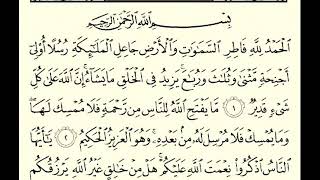 بِسْمِ اللَّهِ الرَّحْمَٰنِ الرَّحِيمِ
الْحَمْدُ لِلَّهِ فَاطِرِ السَّمَٰوَٰتِ وَالْأَرْضِ جَاعِلِ الْمَلَٰٓئِكَةِ رُسُلًا أُو۟لِىٓ
أَجْنِحَةٍ مَّثْنَىٰ وَثُلَٰثَ وَرُبَٰعَ ۚ يَزِيدُ فِى الْخَلْقِ مَا يَشَآءُ ۚ إِنَّ اللَّهَ عَلَىٰ كُلِّ
شَىْءٍ قَدِيرٌ ١ مَّا يَفْتَحِ اللَّهُ لِلنَّاسِ مِن رَّحْمَةٍ فَلَا مُمْسِكَ لَهَا ۖ
وَمَا يُمْسِكْ فَلَا مُرْسِلَ لَهُۥ مِنۢ بَعْدِهِۦ ۚ وَهُوَ الْعَزِيزُ الْحَكِيمُ ٢ يَٰٓأَيُّهَا
النَّاسُ اذْكُرُوا۟ نِعْمَتَ اللَّهِ عَلَيْكُمْ ۚ هَلْ مِنْ خَٰلِقٍ غَيْرُ اللَّهِ يَرْزُقُكُم